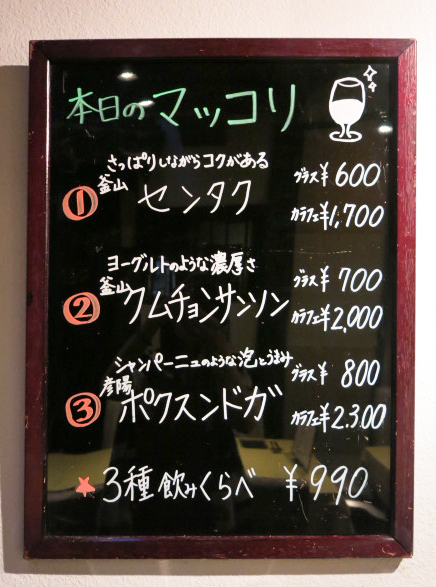 本日のマッコリ
さっぱりしながらコクがある
① 釜山 センタク グラス¥600
カラフェ¥1,700
ヨーグルトのような濃厚さ
② 釜山 クムチョンサンソン グラス¥700
カラフェ¥2,000
シャンパーニュのような泡とうまみ
③ 彦陽 ポクスンドガ グラス¥800
カラフェ¥2,300
★3種飲みくらべ ¥990